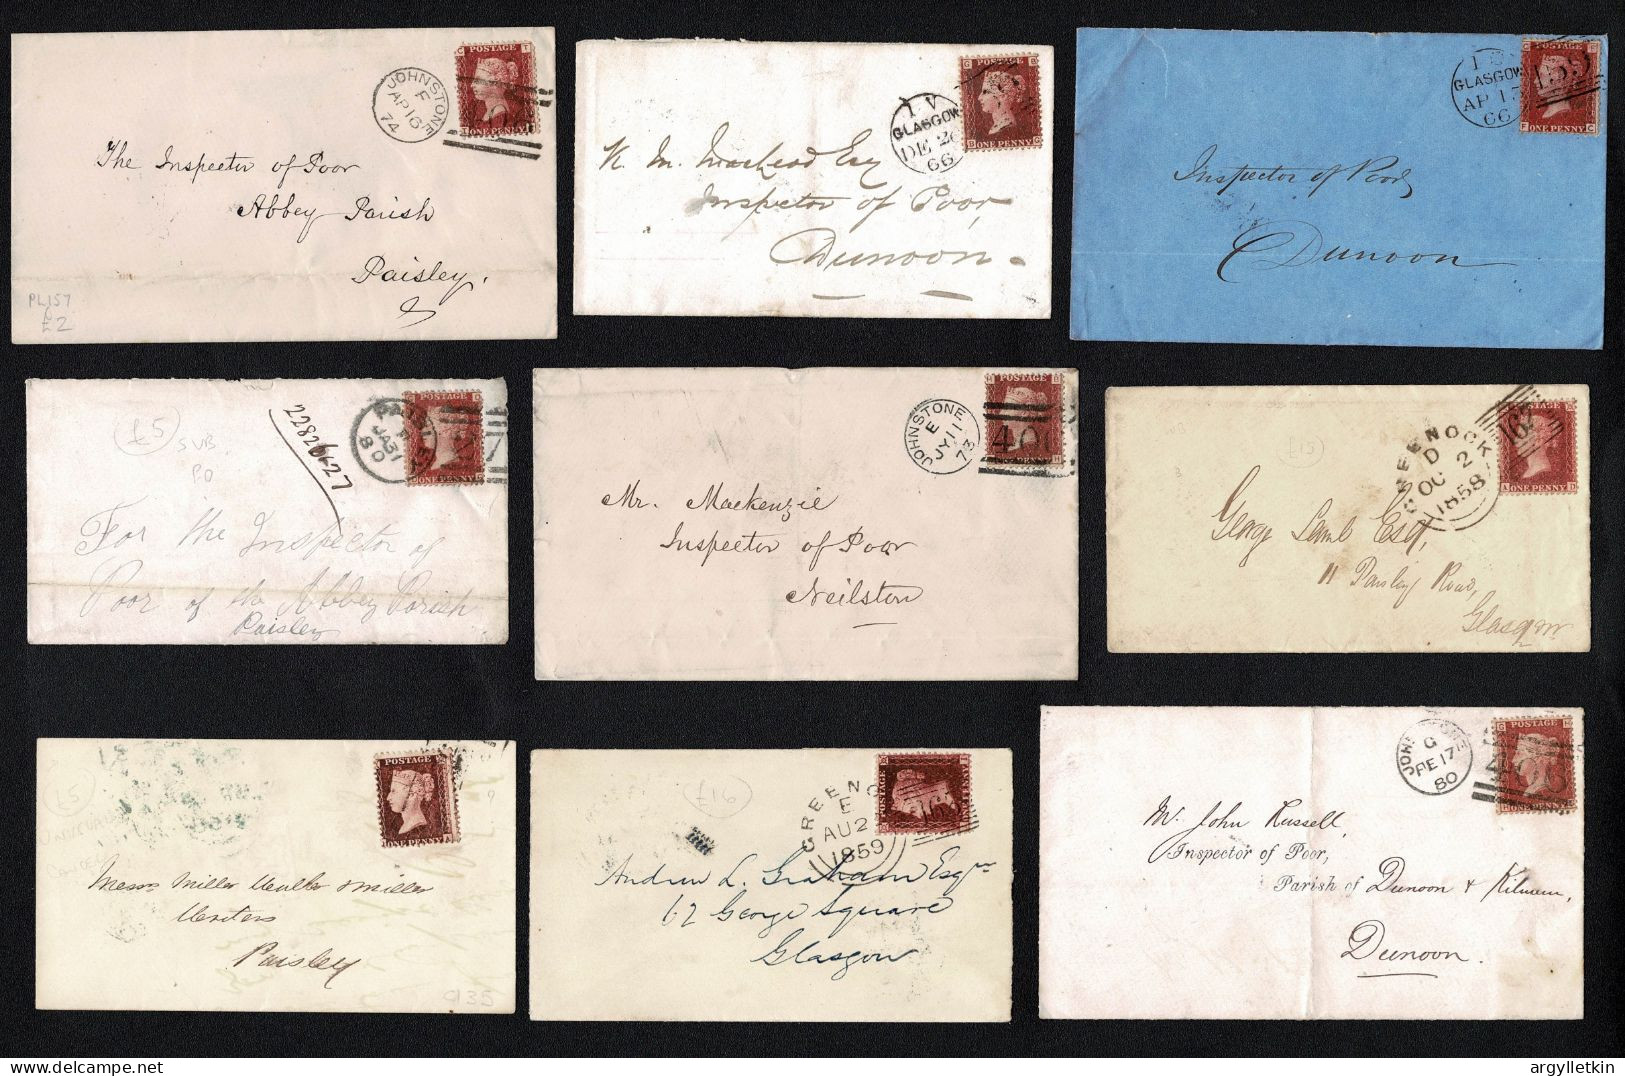 POSTAGE
ONE PENNY
JOHNSTONE
F
AP 16
74
The Inspector of Poor
Abbey Parish
Paisley.
PL157
£2
POSTAGE
ONE PENNY
1 V
GLASGOW
DE 26
66
Inspector of Poor,
Dunoon
POSTAGE
ONE PENNY
GLASGOW
AP 17
66
159
Inspector of Poor
Dunoon
£5
SUB
PO
PAISLEY
JA 31
80
ONE PENNY
For the Inspector of
Poor of the Abbey Parish
Paisley
POSTAGE
JOHNSTONE
E
JY 11
73
Mr. Mackenzie
Inspector of Poor
Neilston
GREENOCK
D
OC 2
1858
163
ONE PENNY
George Lamb Esq,
11 Paisley Road,
Glasgow
POSTAGE
ONE PENNY
£5
Writers
Paisley
£16
GREENO
E
AU 2
1859
163
POSTAGE
Andrew L. Graham Esqre
62 George Square
Glasgow
POSTAGE
ONE PENNY
JOHNSTONE
G
FE 17
80
Mr. John Russell,
Inspector of Poor,
Parish of Dunoon & Kilmun,
Dunoon.
argylletkin